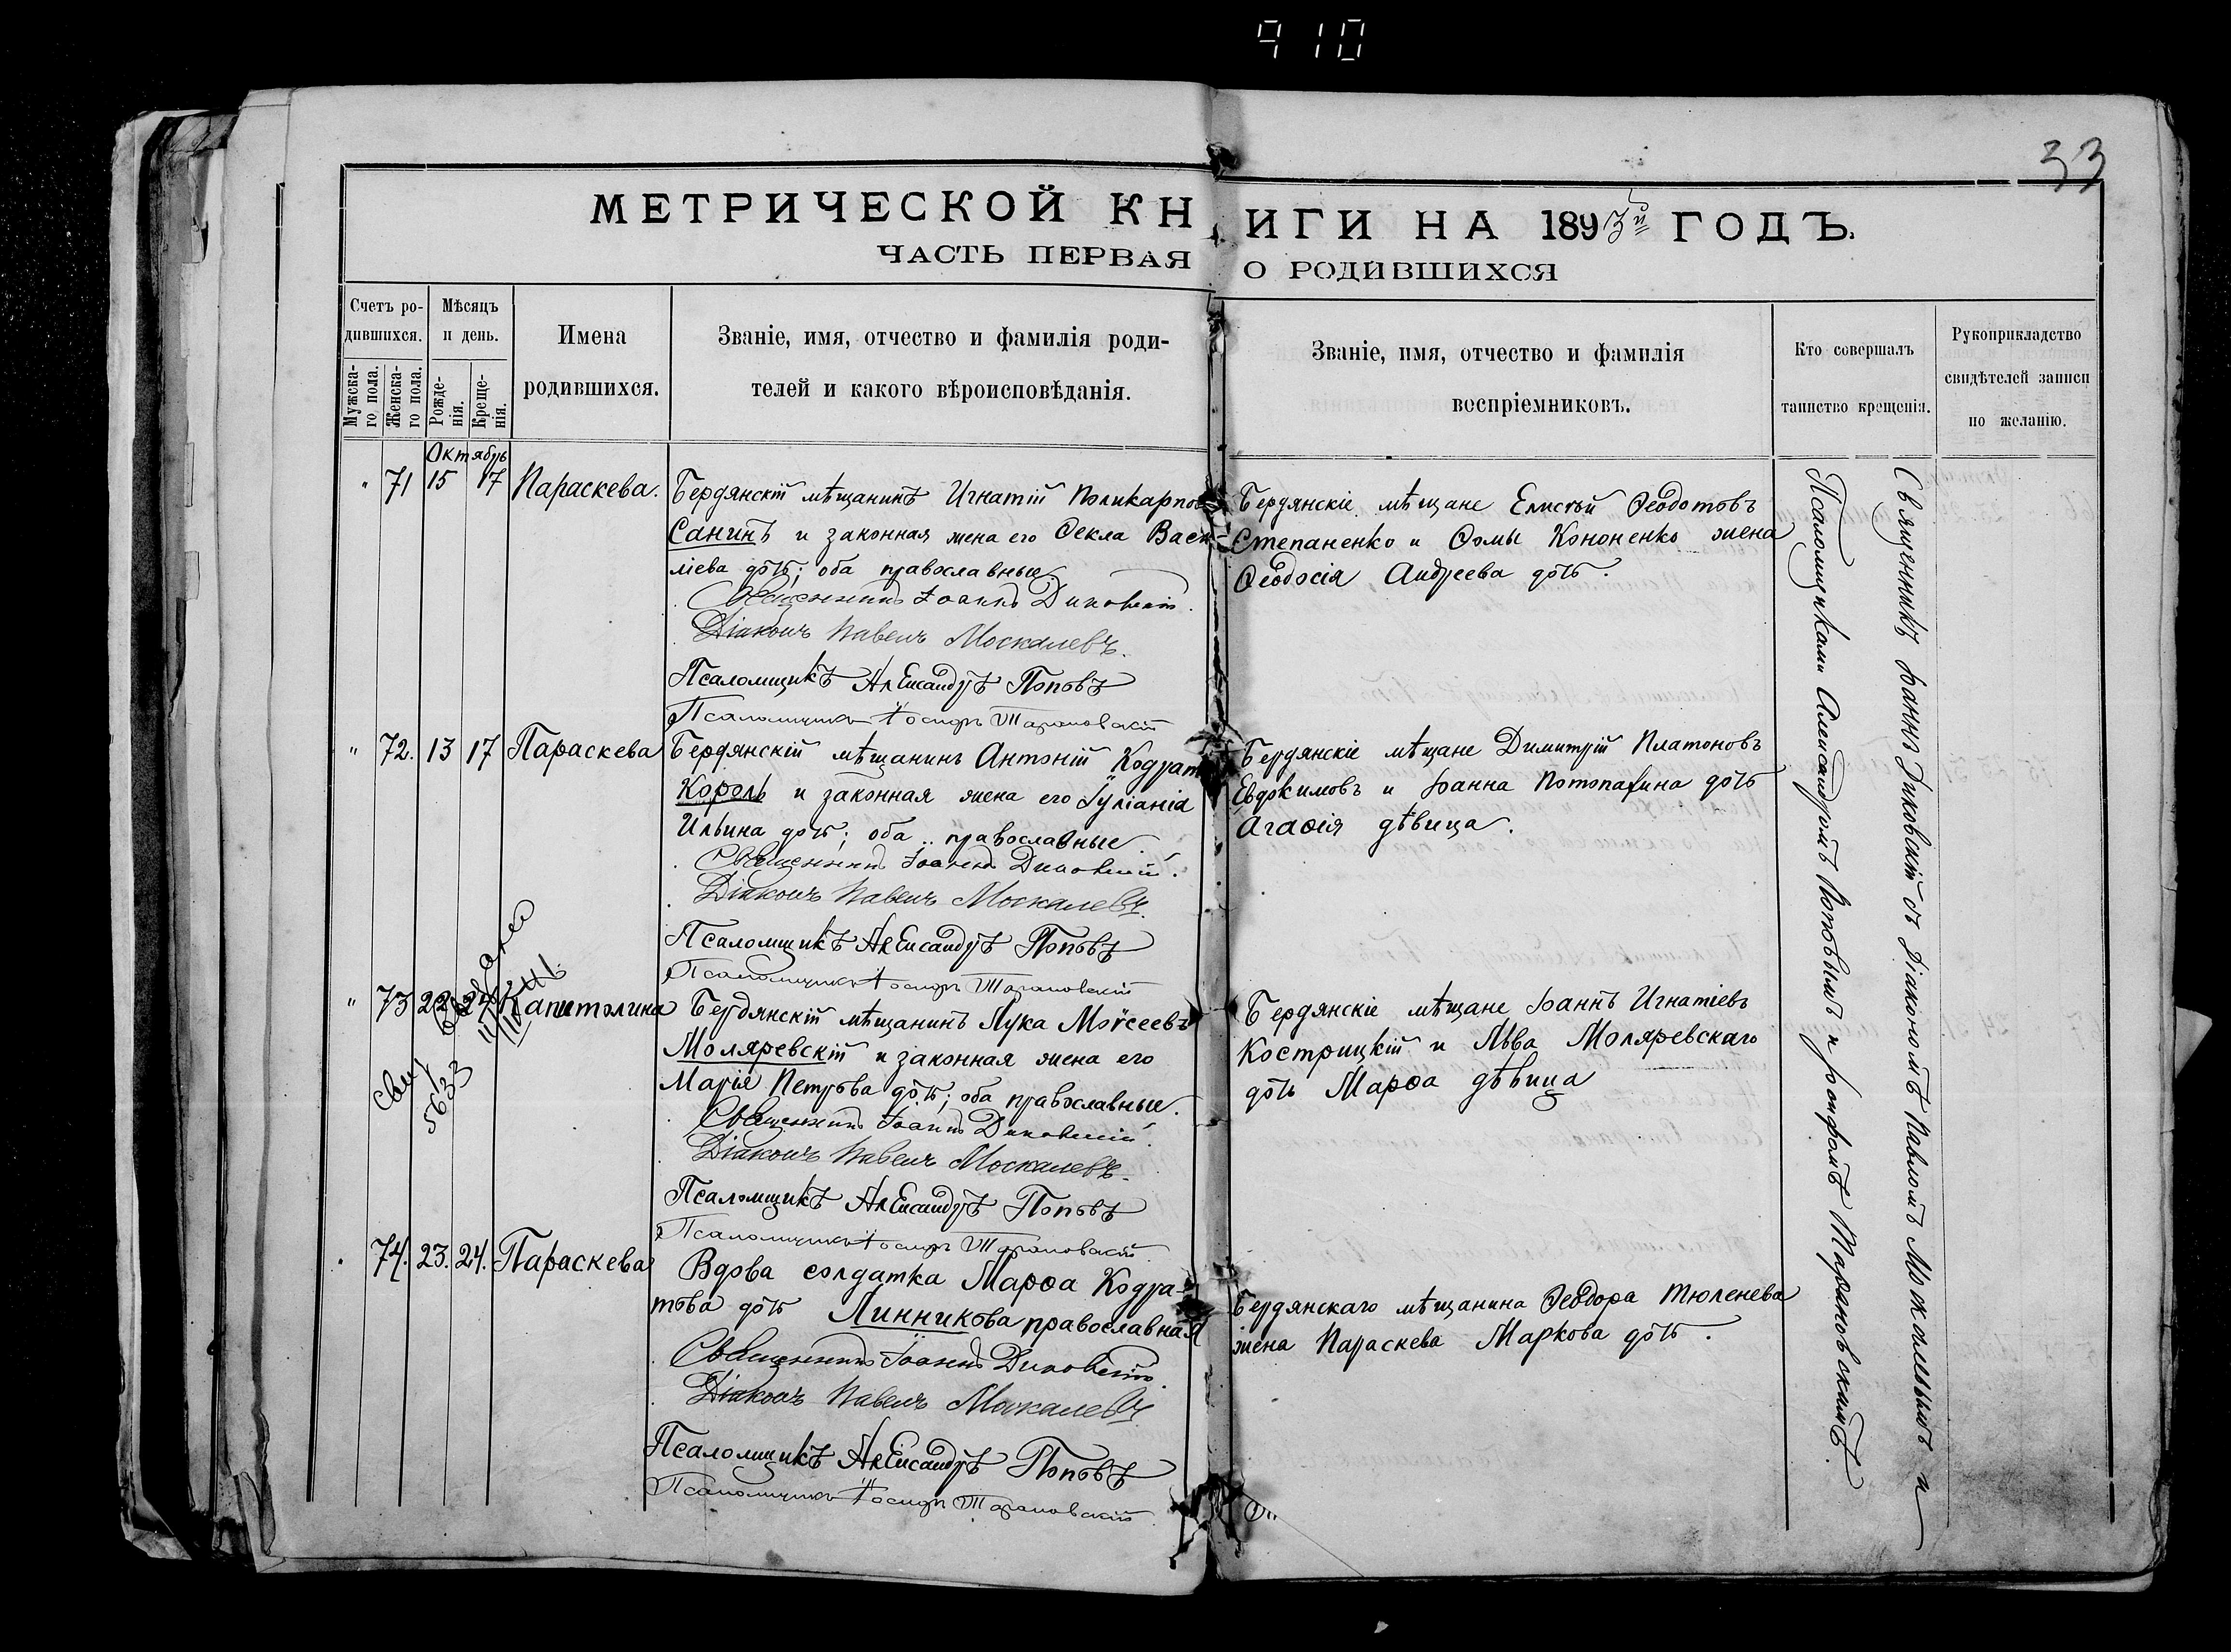 910
33
МЕТРИЧЕСКОЙ КНИГИ НА 1893й ГОДЪ.
ЧАСТЬ ПЕРВАЯ О РОДИВШИХСЯ
Счетъ ро-
дившихся.
Мужска-
го пола.
Женска-
го пола.
Мѣсяцъ
и день.
Рожде-
нія.
Креще-
нія.
Имена
родившихся.
Званіе, имя, отчество и фамилія роди-
телей и какого вѣроисповѣданія.
Званіе, имя, отчество и фамилія
воспріемниковъ.
Кто совершалъ
таинство крещенія.
Рукоприкладство
свидѣтелей записи
по желанію.
Октябрь
" 71 15 17 Параскева.
Бердянскій мѣщанинъ Игнатій Поликарпов
Санинъ и законная жена его Ѳекла Васи-
ліева дочь; оба православные.
Священникъ Іоаннъ Диковскій.
Діаконъ Павелъ Москалевъ.
Псаломщикъ Александръ Поповъ
Псаломщикъ Іосифъ Тарановскій
Бердянскіе мѣщане Елисѣй Ѳеодотовъ
Степаненко и Ѳомы Кононенко жена
Ѳеодосія Андреева дочь.
" 72. 13 17 Параскева
Бердянскій мѣщанинъ Антоній Кодрат
Король и законная жена его Іуліанія
Ильина дочь; оба православные
Священникъ Іоаннъ Диковскій.
Діаконъ Павелъ Москалевъ.
Псаломщикъ Александръ Поповъ
Псаломщикъ Іосифъ Тарановскій
Бердянскіе мѣщане Димитрій Платоновъ
Евдокимовъ и Іоанна Потопахина дочь
Агаѳія дѣвица.
" 73 22 24 Капитолина
5633
Бердянскій мѣщанинъ Лука Моѵсеевъ
Моляревскій и законная жена его
Марія Петрова дочь; оба православные.
Священникъ Іоаннъ Диковскій.
Діаконъ Павелъ Москалевъ.
Псаломщикъ Александръ Поповъ
Псаломщикъ Іосифъ Тарановскій
Бердянскіе мѣщане Іоаннъ Игнатіевъ
Кострицкій и Льва Моляревскаго
дочь Марѳа дѣвица
" 74. 23. 24. Параскева
Вдова солдатка Марѳа Кодра-
това дочь Линникова православная
Священникъ Іоаннъ Диковскій.
Діаконъ Павелъ Москалевъ
Псаломщикъ Александръ Поповъ
Псаломщикъ Іосифъ Тарановскій
Бердянскаго мѣщанина Ѳеодора Тюленева
жена Параскева Маркова дочь.
Священникъ Іоаннъ Диковскій съ Діакономъ Павломъ Москалевымъ и
Псаломщиками Александромъ Поповымъ и Іосифомъ Тарановскимъ.